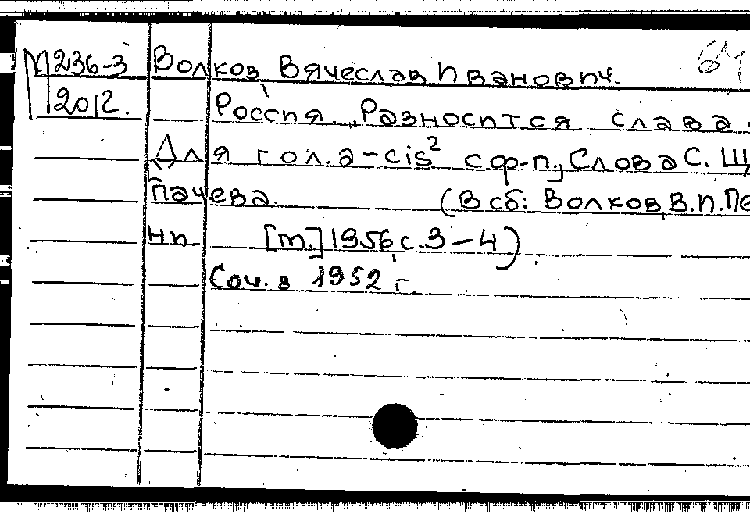 М236-3 Волков Вячеслав Иванович. 64
2012. Россия, Разносится слава
Для гол. a-cis² с ф-п, Слова С. Щ
пачева (В сб: Волков, В.И. Пе
ни [м.] 1956, с. 3-4).
Соч. в 1952 г.